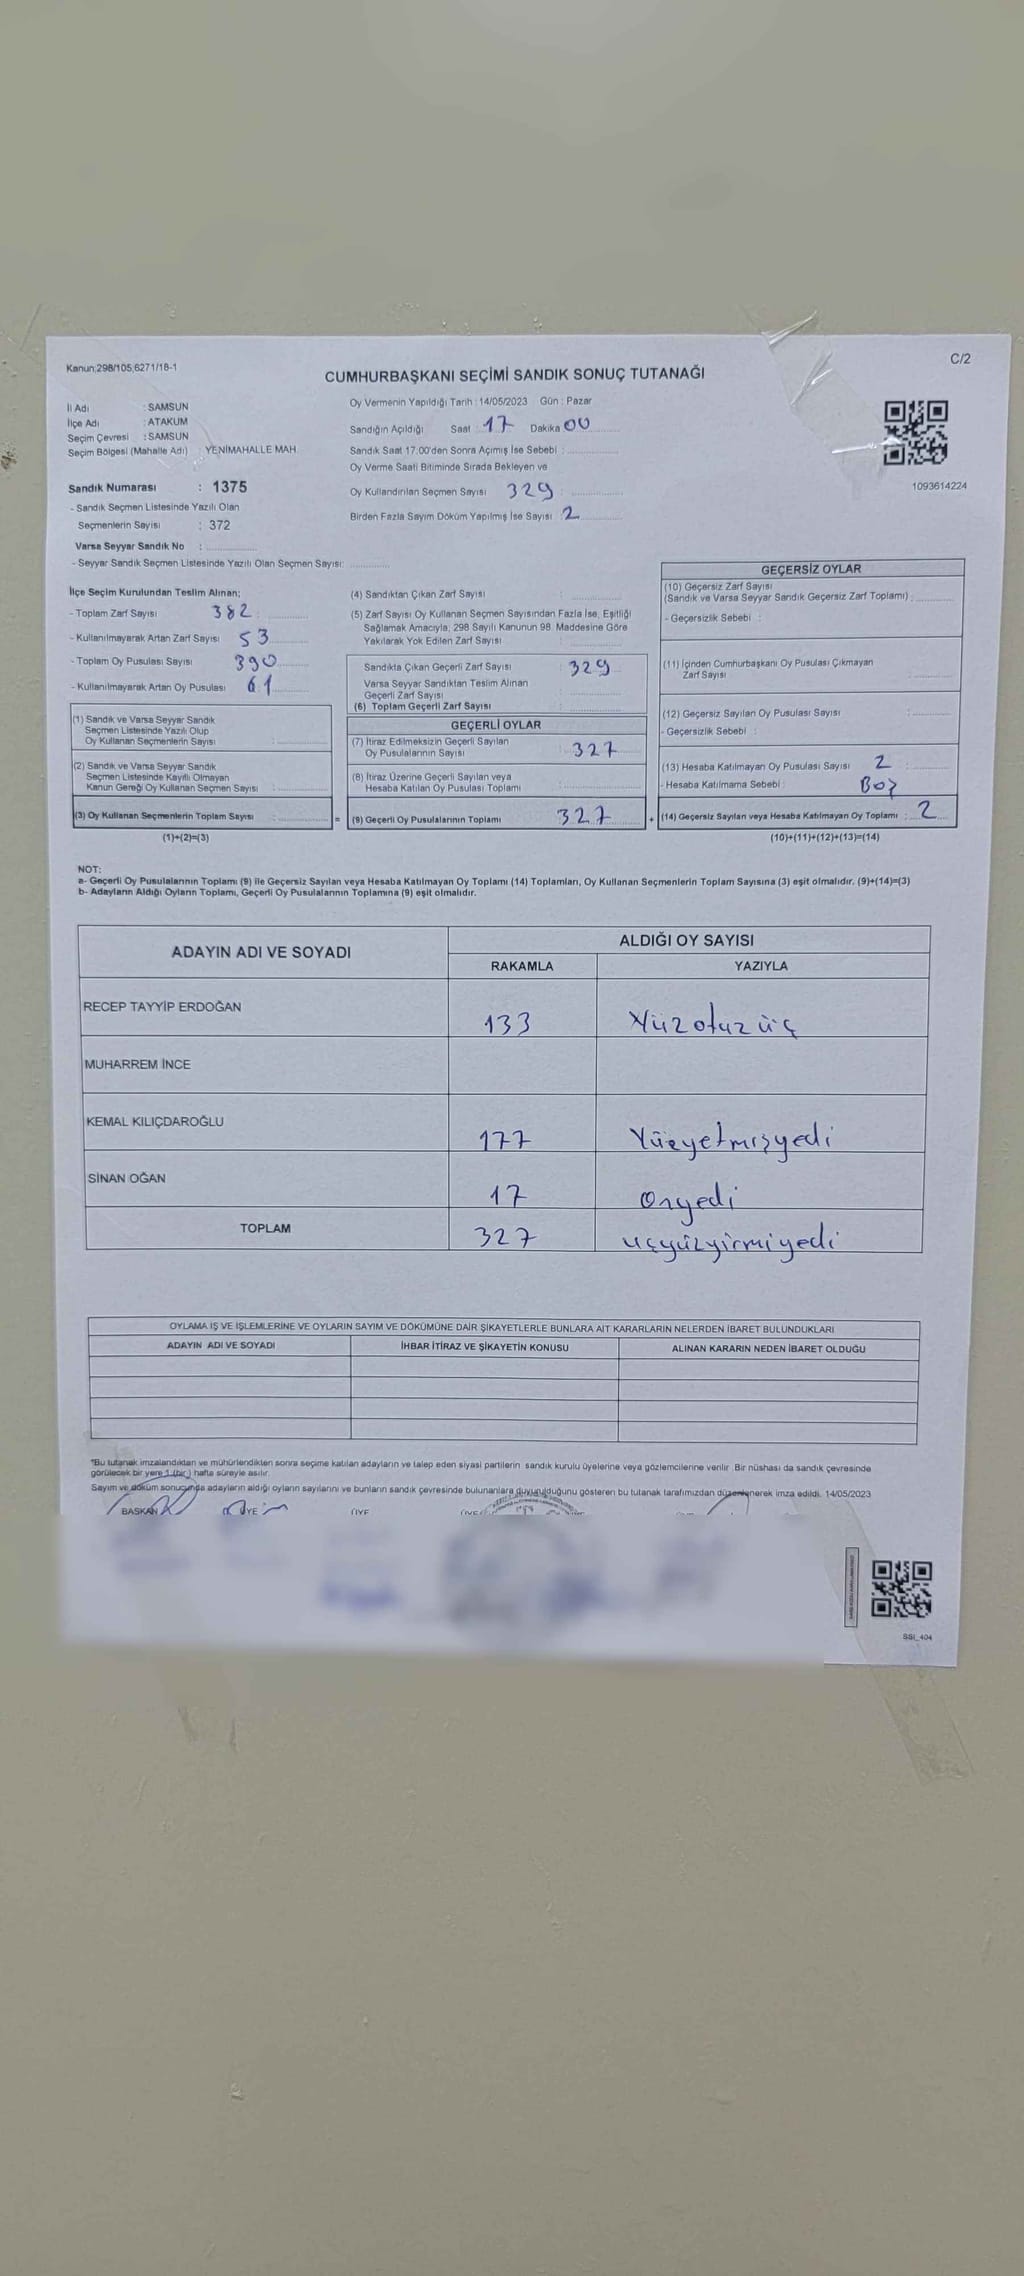 Kanun;298/105,6271/18-1
C/2
CUMHURBAŞKANI SEÇİMİ SANDIK SONUÇ TUTANAĞI
İl Adı : SAMSUN
İlçe Adı : ATAKUM
Seçim Çevresi : SAMSUN
Seçim Bölgesi (Mahalle Adı) : YENİMAHALLE MAH.
Oy Vermenin Yapıldığı Tarih : 14/05/2023 Gün : Pazar
Sandığın Açıldığı Saat : 17 Dakika 00
Sandık Saat 17:00'den Sonra Açımış İse Sebebi :
Oy Verme Saati Bitiminde Sırada Bekleyen ve
Oy Kullandırılan Seçmen Sayısı 329 :
Birden Fazla Sayım Döküm Yapılmış İse Sayısı : 2
1093614224
Sandık Numarası : 1375
- Sandık Seçmen Listesinde Yazılı Olan
Seçmenlerin Sayısı : 372
Varsa Seyyar Sandık No :
- Seyyar Sandık Seçmen Listesinde Yazılı Olan Seçmen Sayısı:
İlçe Seçim Kurulundan Teslim Alınan;
- Toplam Zarf Sayısı 382
- Kullanılmayarak Artan Zarf Sayısı 53
- Toplam Oy Pusulası Sayısı 390
- Kullanılmayarak Artan Oy Pusulası 61
(1) Sandık ve Varsa Seyyar Sandık
Seçmen Listesinde Yazılı Olup
Oy Kullanan Seçmenlerin Sayısı :
(2) Sandık ve Varsa Seyyar Sandık
Seçmen Listesinde Kayıtlı Olmayan
Kanun Gereği Oy Kullanan Seçmen Sayısı :
(3) Oy Kullanan Seçmenlerin Toplam Sayısı :
(1)+(2)=(3)
=
(4) Sandıktan Çıkan Zarf Sayısı :
(5) Zarf Sayısı Oy Kullanan Seçmen Sayısından Fazla İse, Eşitliği
Sağlamak Amacıyla; 298 Sayılı Kanunun 98. Maddesine Göre
Yakılarak Yok Edilen Zarf Sayısı :
Sandıkta Çıkan Geçerli Zarf Sayısı : 329
Varsa Seyyar Sandıktan Teslim Alınan
Geçerli Zarf Sayısı :
(6) Toplam Geçerli Zarf Sayısı :
GEÇERLİ OYLAR
(7) İtiraz Edilmeksizin Geçerli Sayılan
Oy Pusulalarının Sayısı : 327
(8) İtiraz Üzerine Geçerli Sayılan veya
Hesaba Katılan Oy Pusulası Toplamı :
(9) Geçerli Oy Pusulalarının Toplamı : 327
+
GEÇERSİZ OYLAR
(10) Geçersiz Zarf Sayısı
(Sandık ve Varsa Seyyar Sandık Geçersiz Zarf Toplamı) :
- Geçersizlik Sebebi :
(11) İçinden Cumhurbaşkanı Oy Pusulası Çıkmayan
Zarf Sayısı :
(12) Geçersiz Sayılan Oy Pusulası Sayısı :
- Geçersizlik Sebebi :
(13) Hesaba Katılmayan Oy Pusulası Sayısı 2 :
- Hesaba Katılmama Sebebi : Boş
(14) Geçersiz Sayılan veya Hesaba Katılmayan Oy Toplamı : 2
(10)+(11)+(12)+(13)=(14)
NOT:
a- Geçerli Oy Pusulalarının Toplamı (9) ile Geçersiz Sayılan veya Hesaba Katılmayan Oy Toplamı (14) Toplamları, Oy Kullanan Seçmenlerin Toplam Sayısına (3) eşit olmalıdır. (9)+(14)=(3)
b- Adayların Aldığı Oyların Toplamı, Geçerli Oy Pusulalarının Toplamına (9) eşit olmalıdır.
ADAYIN ADI VE SOYADI
ALDIĞI OY SAYISI
RAKAMLA YAZIYLA
RECEP TAYYİP ERDOĞAN 133 Yüzotuzüç
MUHARREM İNCE
KEMAL KILIÇDAROĞLU 177 Yüzyetmişyedi
SİNAN OĞAN 17 Onyedi
TOPLAM 327 üçyüzyirmiyedi
OYLAMA İŞ VE İŞLEMLERİNE VE OYLARIN SAYIM VE DÖKÜMÜNE DAİR ŞİKAYETLERLE BUNLARA AİT KARARLARIN NELERDEN İBARET BULUNDUKLARI
ADAYIN ADI VE SOYADI İHBAR İTİRAZ VE ŞİKAYETİN KONUSU ALINAN KARARIN NEDEN İBARET OLDUĞU
*Bu tutanak imzalandıktan ve mühürlendikten sonra seçime katılan adayların ve talep eden siyasi partilerin sandık kurulu üyelerine veya gözlemcilerine verilir. Bir nüshası da sandık çevresinde
görülecek bir yere 1 (bir ) hafta süreyle asılır.
Sayım ve döküm sonucunda adayların aldığı oyların sayılarını ve bunların sandık çevresinde bulunanlara duyurulduğunu gösteren bu tutanak tarafımızdan düzenlenerek imza edildi. 14/05/2023
BAŞKAN ÜYE ÜYE ÜYE
SSI_404